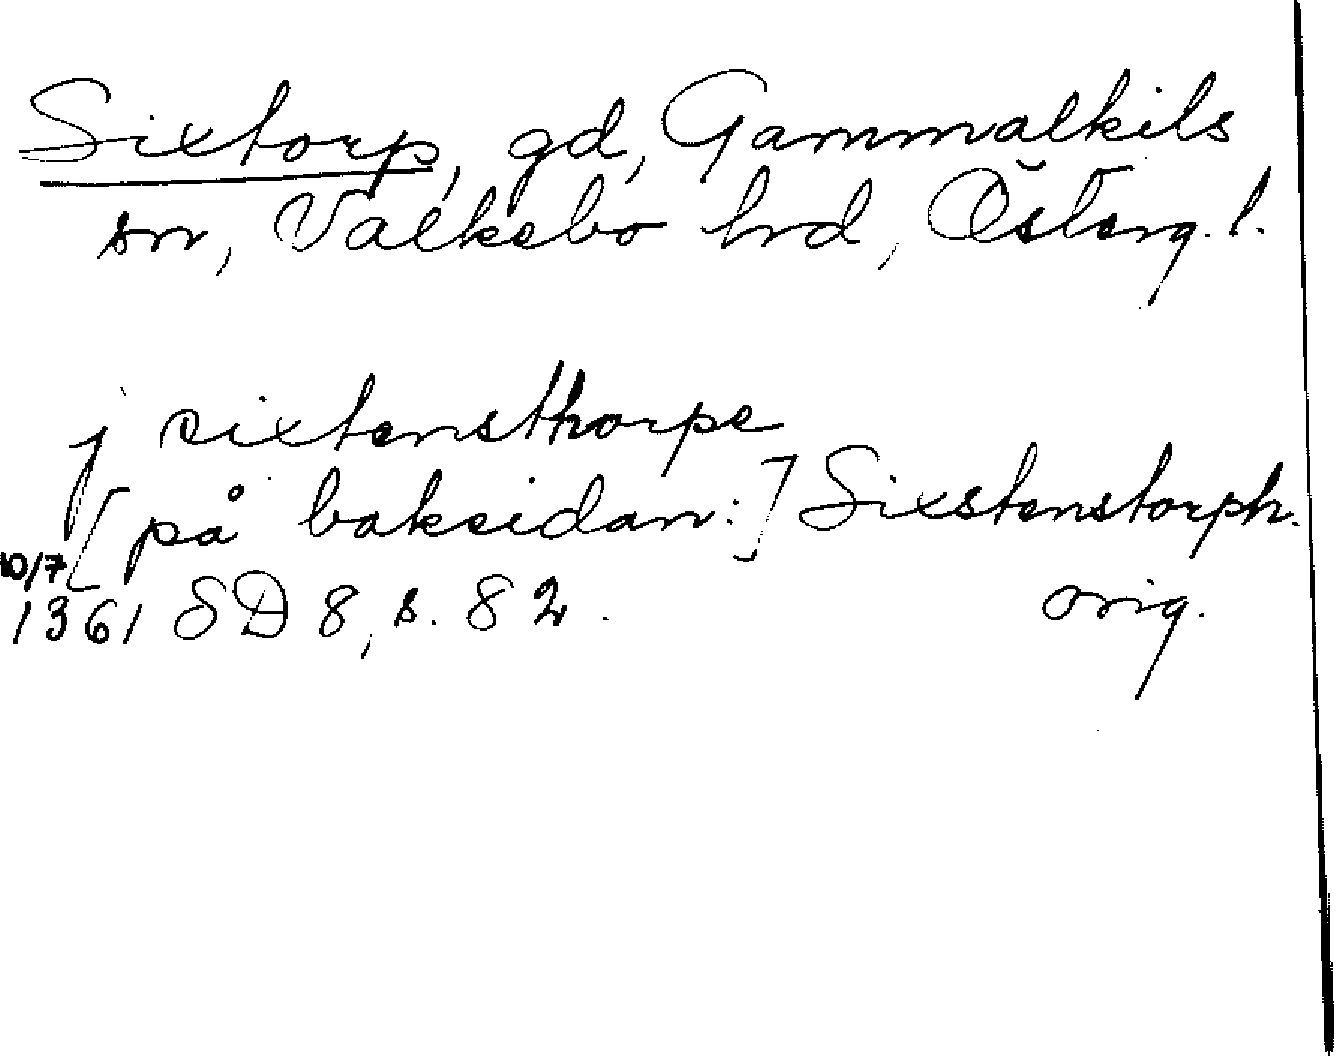 Sixtorp, gd, Gammalkils
sn, Valkebo hrd, Österg. l.
j sixtensthorpe
[på baksidan:] Sixstenstorph.
10/7
1361 SD 8, s. 82. orig.